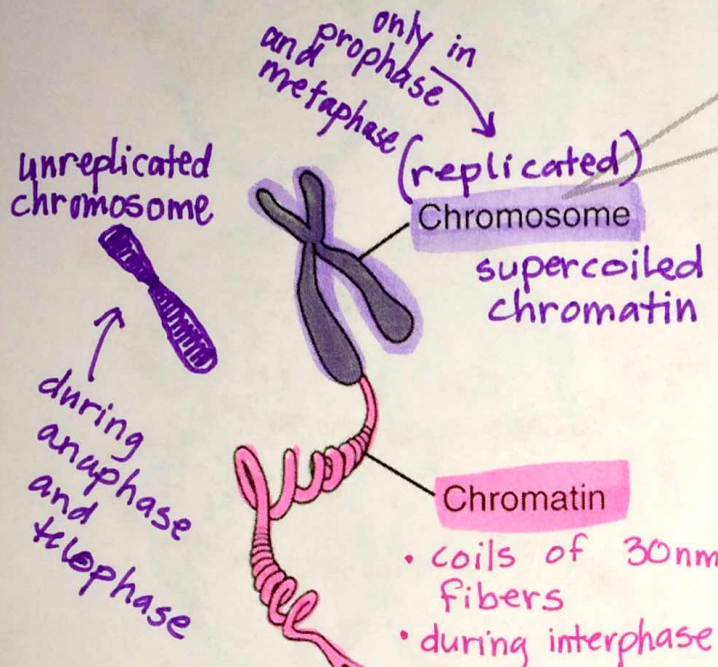 only in
prophase
and
metaphase
(replicated)
Chromosome
supercoiled
chromatin
unreplicated
chromosome
during
anaphase
and
telophase
Chromatin
• coils of 30nm
fibers
• during interphase